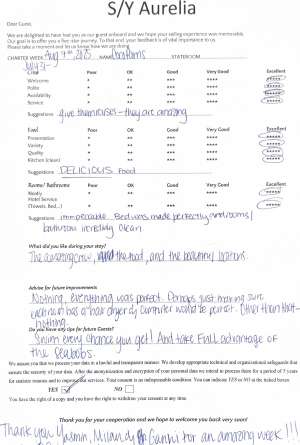 S/Y Aurelia
Dear Guest,
We are delighted to have had you as our guest onboard and we hope your sailing experience was memorable.
Our goal is to offer you a five star journey. To that end, your feedback is of vital importance to us.
Please take a moment and let us know how we are doing.
CHARTER WEEK Aug 7th, 2025 STATEROOM
July 31-
Crew Poor OK Good Very Good Excellent
Welcome * ** *** **** *****
Polite * ** *** **** *****
Availability * ** *** **** *****
Service * ** *** **** *****
Suggestions give them raises - they are amazing
Food Poor OK Good Very Good Excellent
Presentation * ** *** **** *****
Variety * ** *** **** *****
Quality * ** *** **** *****
Kitchen (clean) * ** *** **** *****
Suggestions DELICIOUS Food
Rooms/ Bathrooms Poor OK Good Very Good Excellent
Ready * ** *** **** *****
Hotel Service
(Towels, Bed...) * ** *** **** *****
Suggestions immpeccable. Bed was made perfectly and rooms/
bathroom incredibly clean.
What did you like during your stay?
The amazing crew, and the food, and the beautiful locations.
Advice for future improvements
Nothing, everything was perfect. Perhaps just making sure
each room has a hair dryer by computer would be perfect. Other than that-
nothing.
Do you have any tips for future Guests?
Swim every chance you get! And take full advantage of
the seabobs.
We assure you that we process your data in a lawful and transparent manner. We develop appropriate technical and organizational safeguards that
ensure the security of your data. After the anonymization and encryption of your personal data we intend to process them for a period of 5 years
for statistic reasons and to improve our services. Your consent is an indispensable condition. You can indicate YES or NO at the linked boxes
YES NO
You have the right of a copy and you have the right to withdraw your consent at any time.
Thank you for your cooperation and we hope to welcome you back very soon!
Thank you Yasmin, Milan, for an amazing week!!!